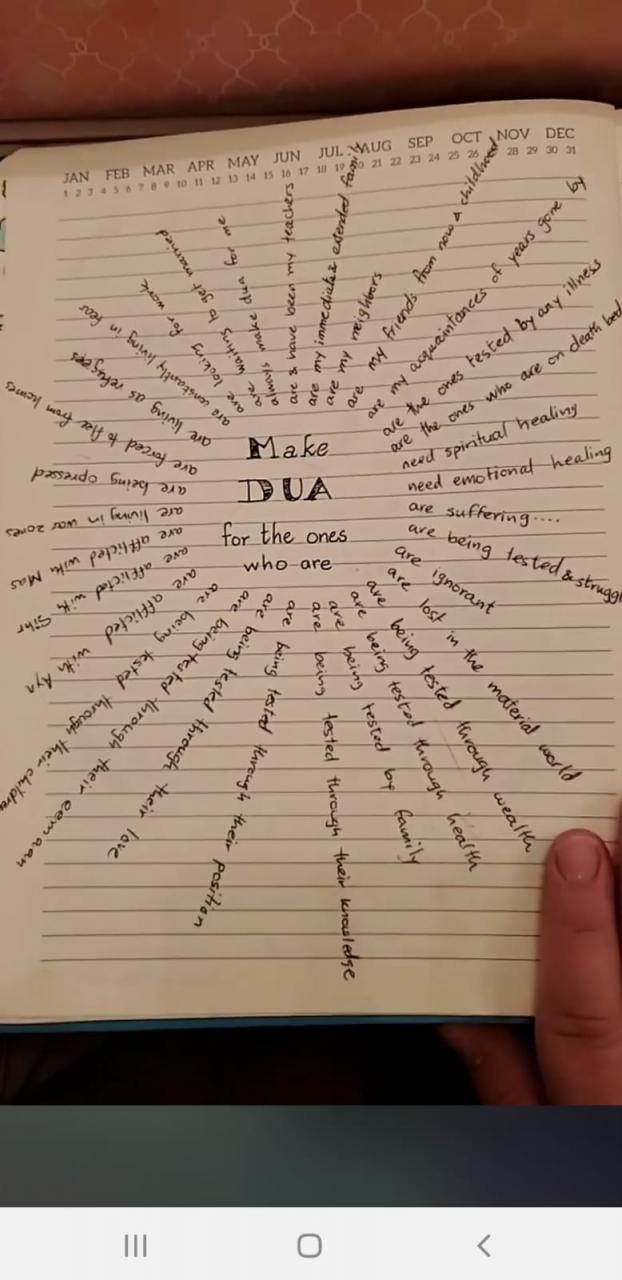 JAN FEB MAR APR MAY JUN JUL AUG SEP OCT NOV DEC
1 2 3 4 5 6 7 8 9 10 11 12 13 14 15 16 17 18 19 20 21 22 23 24 25 26 28 29 30 31
Make
DUA
for the ones
who are
are & have been my teachers
are my immediate & extended family
are my neighbors
are my friends from now & childhood
are my acquaintances of years gone by
are the ones tested by any illness
are the ones who are on death bed
need spiritual healing
need emotional healing
are suffering....
are being tested & struggl
are ignorant
are lost in the material world
are being tested through wealth
are being tested through health
are being tested by family
are being tested through their knowledge
are being tested through their position
are being tested through their love
are being tested through their eemaan
are being tested through their children
are afflicted with Ayn
are afflicted with Sihr
are afflicted with Mas
are living in war zones
are being opressed
are forced to flee from homes
are living as refugees
are constantly living in fear
are looking for work
are waiting to get married
always make dua for me